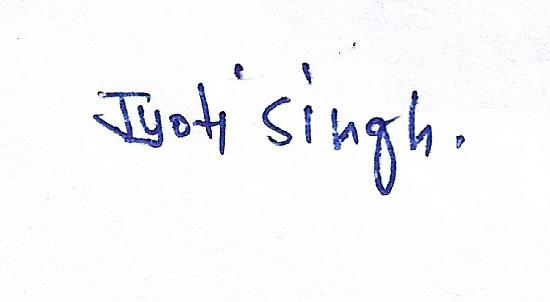 Jyoti Singh.